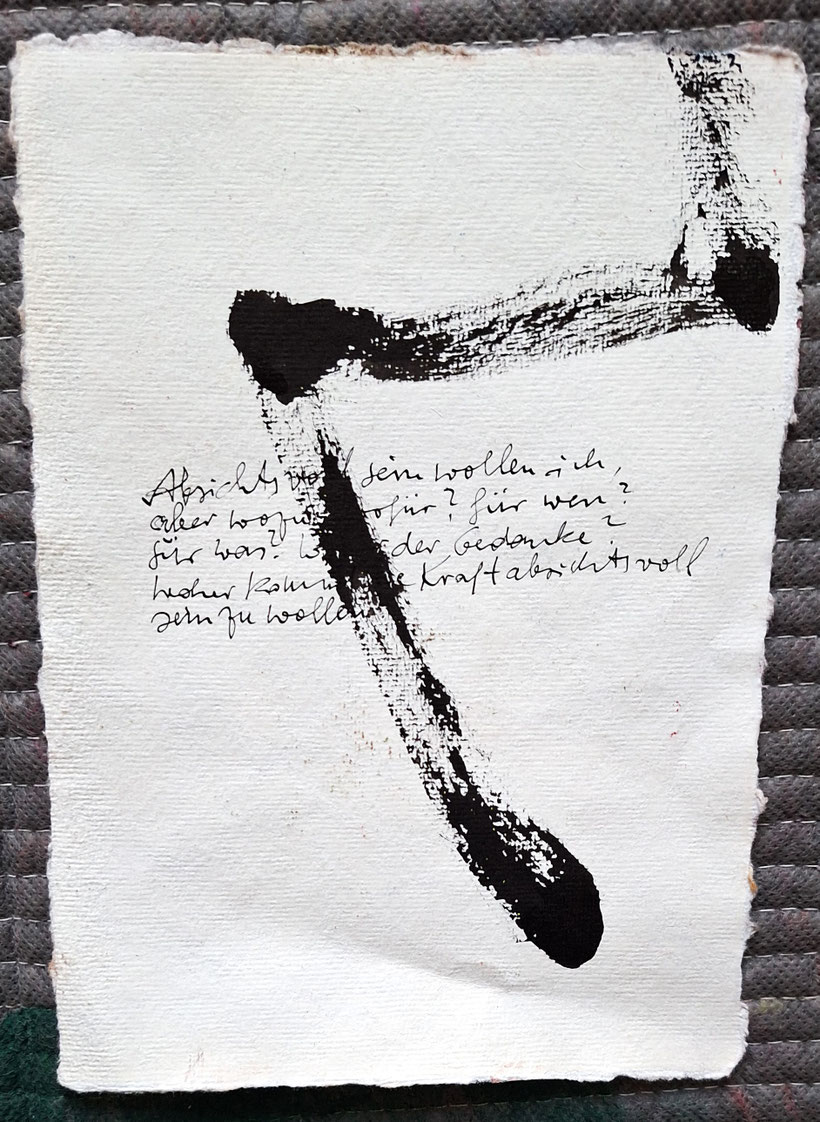 Absichtsvoll sein wollen ich,
aber wozu? wofür? für wen?
für was? der Gedanke?
woher kommt die Kraft absichtsvoll
sein zu wollen